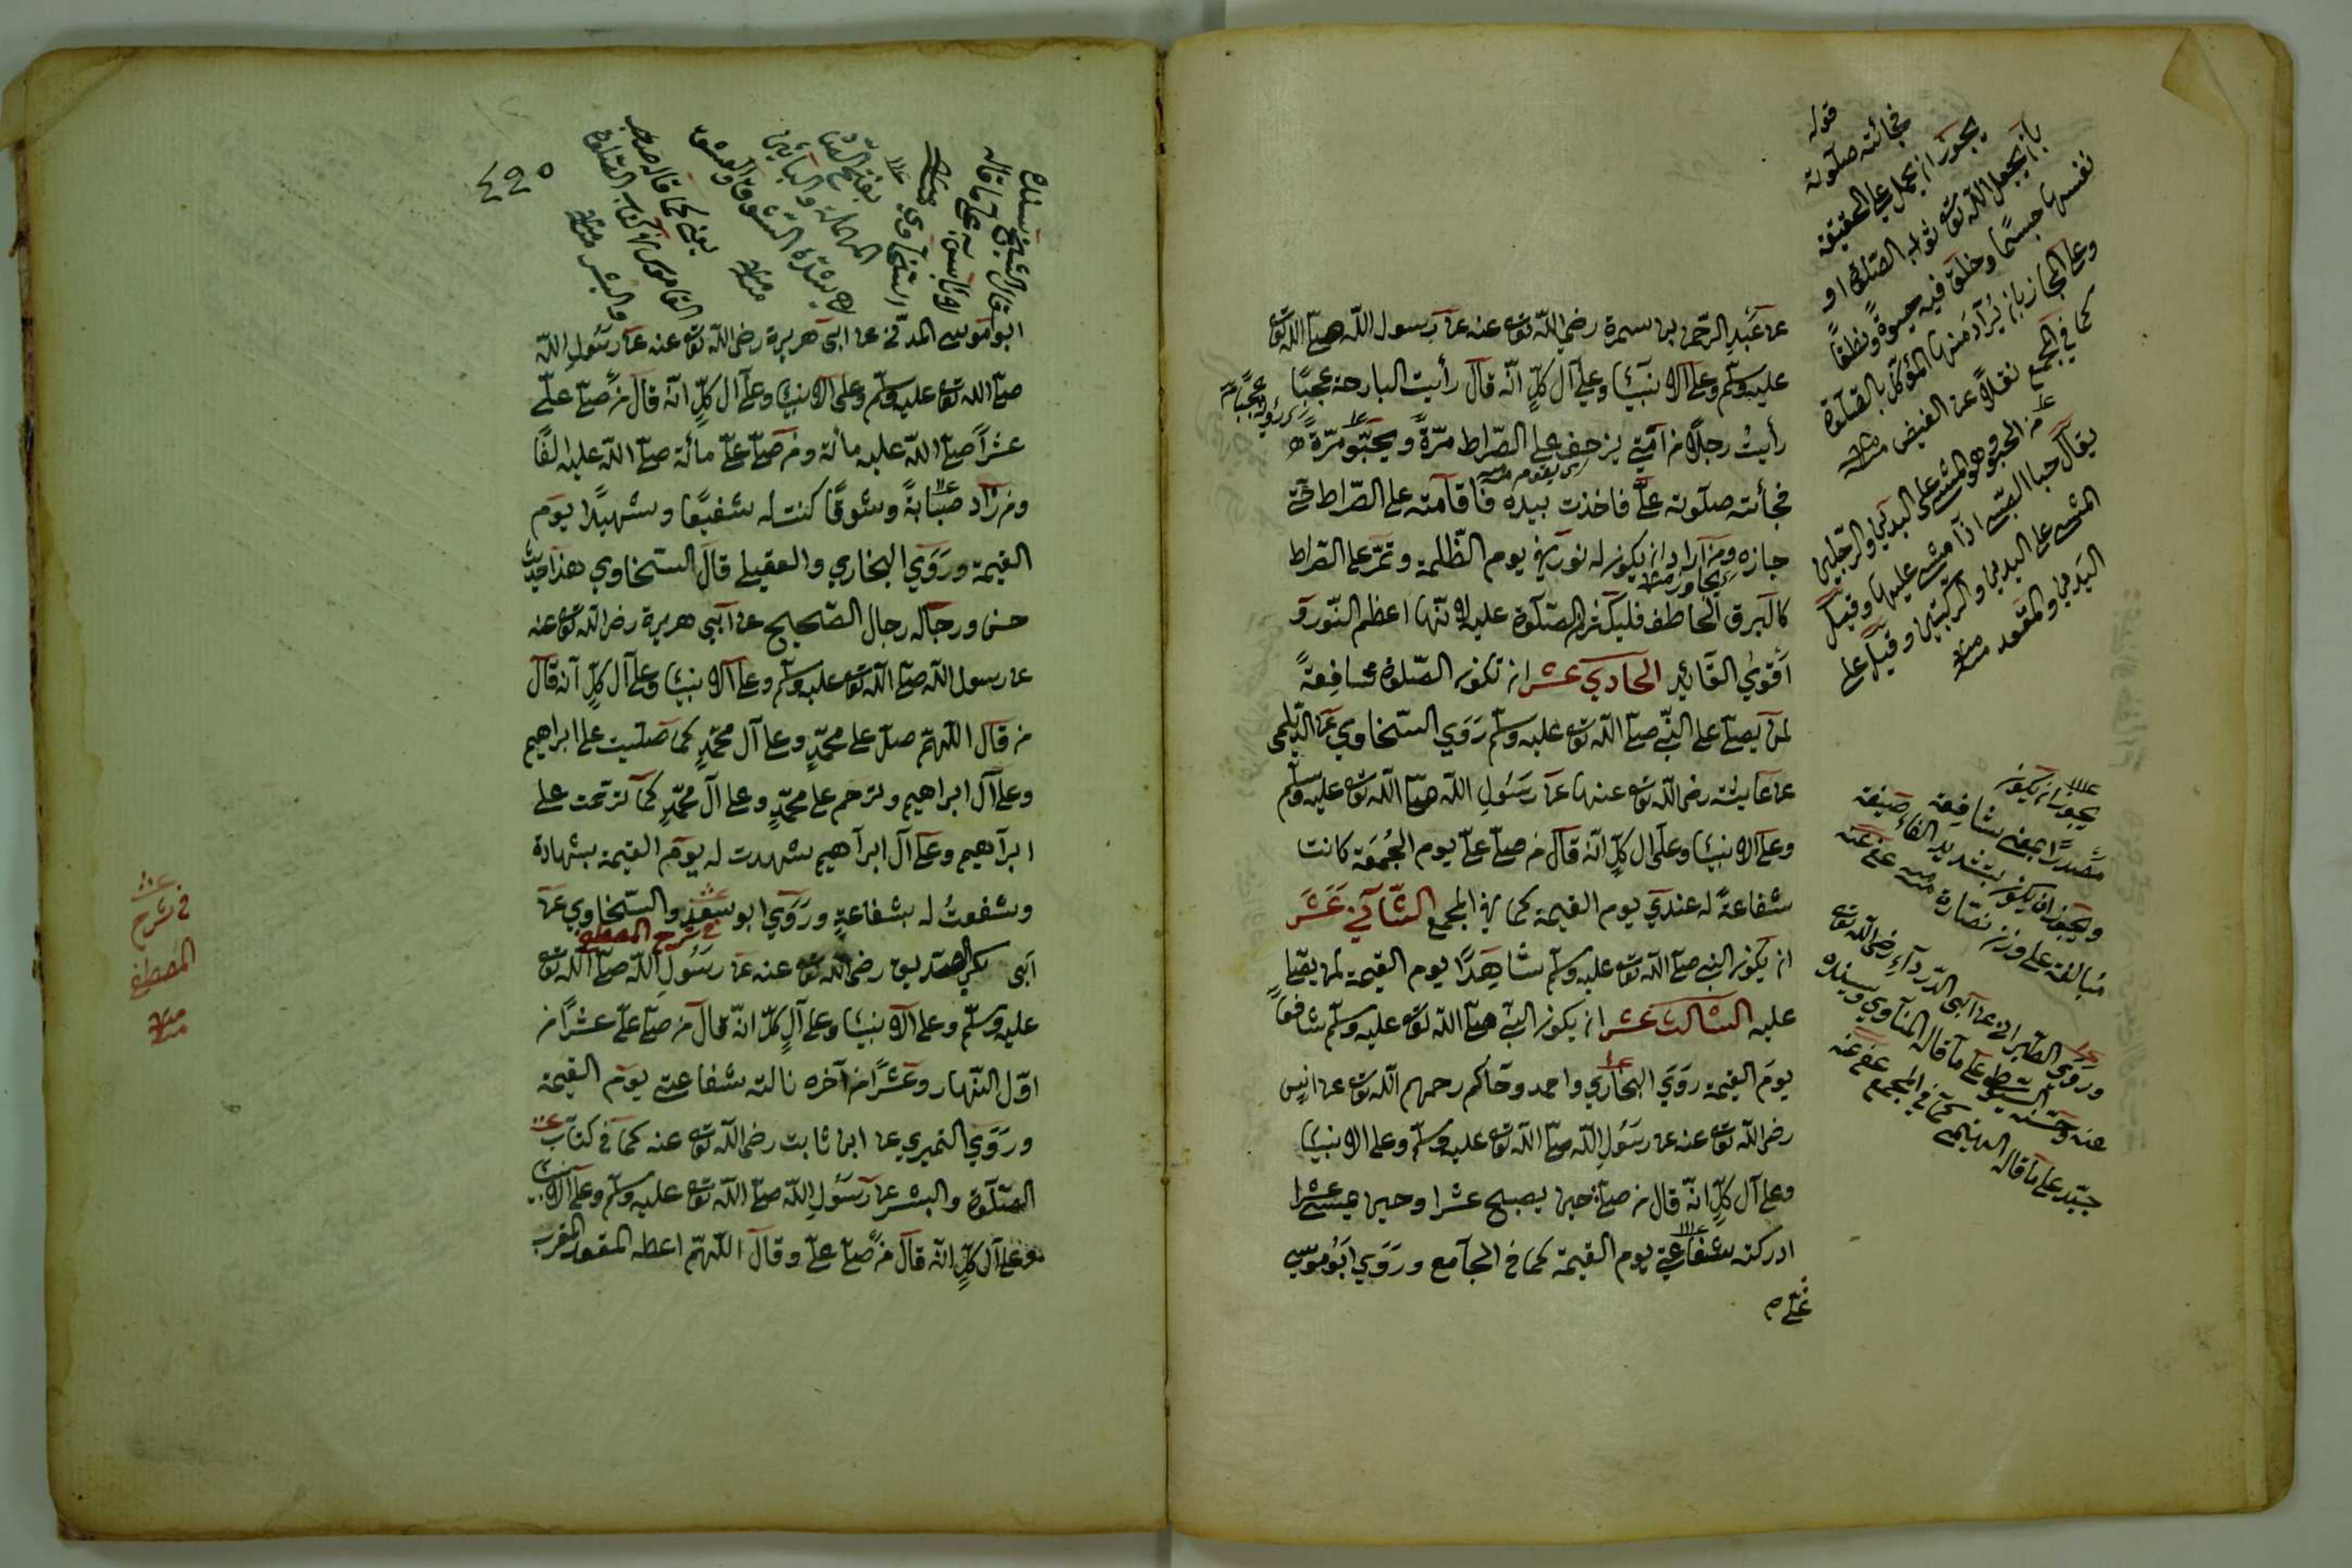 عن عبد الرحمن بن سمرة رضي الله تع عنه عن رسول الله صلى الله تع
عليه وسلم وعلى الانبياء وعلى آل كل انه قال رأيت البارحة عجبا
رأيت رجلا من امتي يزحف على الصراط مرة ويحبو مرة
فجائته صلوته علي فاخذت بيده فاقامته على الصراط حتى
جازه ومن اراد ان يكون له نور في يوم الظلمة وتمر على الصراط
كالبرق الخاطف فليكثر الصلوة عليه لانها اعظم النور و
أقوى القائد الحادي عشر ان تكون الصلوة شافعة
لمن يصلي على النبي صلى الله تع عليه وسلم روي السخاوي عن الديلمي
عن عايشة رضي الله تع عنها عن رسول الله صلى الله تع عليه وسلم
وعلى الانبياء وعلى ال كل انه قال من صلى علي يوم الجمعة كانت
شفاعة له عندي يوم القيمة كما في المجمع الثاني عشر
ان يكون النبي صلى الله تع عليه وسلم شاهدا يوم القيمة لمن يصلي
عليه الثالث عشر ان يكون النبي صلى الله تع عليه وسلم شافعا
يوم القيمة روي البخاري واحمد وحاكم رحمهم الله تع عن انس
رضي الله تع عنه عن رسول الله صلى الله تع عليه وسلم وعلى الانبياء
وعلى آل كل انه قال من صلى حين يصبح عشرا وحين يمسي عشرا
ادركته شفاعتي يوم القيمة كما في الجامع وروي ابو موسى
قوله
فجائته صلوته
يجوز ان يحمل على الحقيقة
بان يجعل الله تع ثواب الصلوة او
نفسها جسما وخلق فيه حيوة ونطقا
وعلى المجاز بان يراد منها المؤكل بالصلوة
كما في المجمع نقلا عن الفيض منه
من الحبو وهو المشي على اليدين والرجلين
يقال حبا الصبي اذا مشى عليها وقيل
المشي على اليدين والركبتين وقيل على
اليدين والمقعد منه
يجوز ان يكون
مصدرا بمعنى شافعة
ويجوز ان يكون بتشديد الفاء صيغة
مبالغة على وزن نصارة منه عفي عنه
وروى الطبراني عن ابي الدرداء رضي الله تع
عنه وحسنه السيوطي على ما قاله المناوي وبسند
جيد على ما قاله الهيثمي كما في المجمع عفي عنه
٤٩٥
ابو موسى المدني عن ابي هريرة رضي الله تع عنه عن رسول الله
صلى الله تع عليه وسلم وعلى الانبياء وعلى ال كل انه قال من صلى علي
عشرا صلى الله عليه مائة ومن صلى علي مائة صلى الله عليه الفا
ومن زاد صبابة وشوقا كنت له شفيعا وشهيدا يوم
القيمة وروي البخاري والعقيلي قال السخاوي هذا حديث
حسن ورجاله رجال الصحيح عن ابي هريرة رضي الله تع عنه
عن رسول الله صلى الله تع عليه وسلم وعلى الانبياء وعلى آل كل انه قال
من قال اللهم صل على محمد وعلى آل محمد كما صليت على ابراهيم
وعلى آل ابراهيم وترحم على محمد وعلى آل محمد كما ترحمت على
ابراهيم وعلى آل ابراهيم شهدت له يوم القيمة بشهادة
وشفعت له بشفاعة وروي ابو سعد والسخاوي عن
في شرح المصطفى
ابي بكر الصديق رضي الله تع عنه عن رسول الله صلى الله تع
عليه وسلم وعلى الانبياء وعلى آل كل انه قال من صلى علي عشرا من
اول النهار وعشرا من آخره نالته شفاعتي يوم القيمة
وروي النميري عن ابن ثابت رضي الله تع عنه كما في كتاب
الصلوة والبشر عن رسول الله صلى الله تع عليه وسلم وعلى الانبياء
وعلى آل كل انه قال من صلى علي وقال اللهم اعطه المقعد المقرب
في شرح
المصطفى
منه